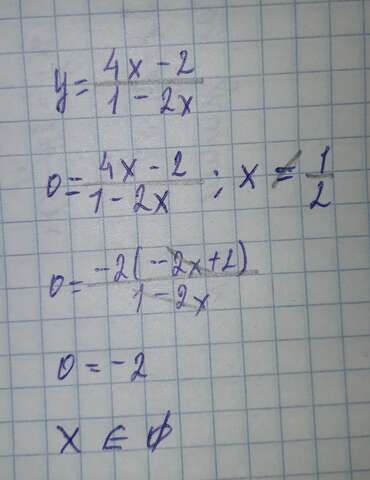 y = (4x - 2)/(1 - 2x)
0 = (4x - 2)/(1 - 2x) ; x ≠ 1/2
0 = (-2(-2x+1))/(1 - 2x)
0 = -2
x ∈ ∅